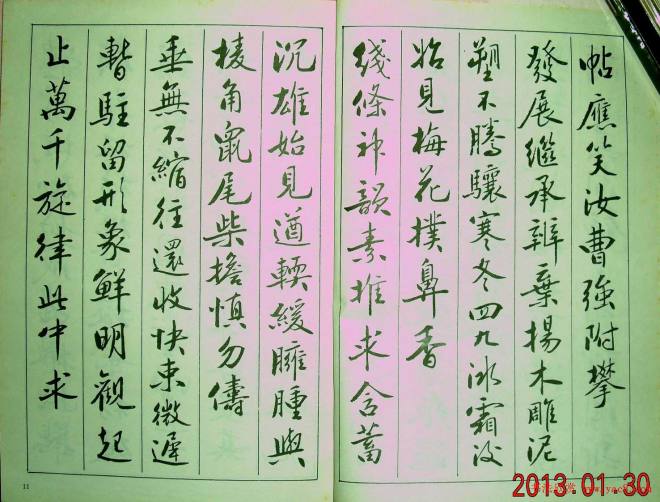 帖應笑汝曹強附攀
發展繼承辯棄揚木雕泥
塑不騰驤寒冬四九冰霜後
始見梅花撲鼻香
綫條神韻素推求含蓄
沉雄始見遒輭緩臃腫與
棱角鼠尾柴擔慎勿儔
垂無不縮往還收快束微遲
暫駐留形象鮮明觀起
止萬千旋律此中求
11
2013.01.30